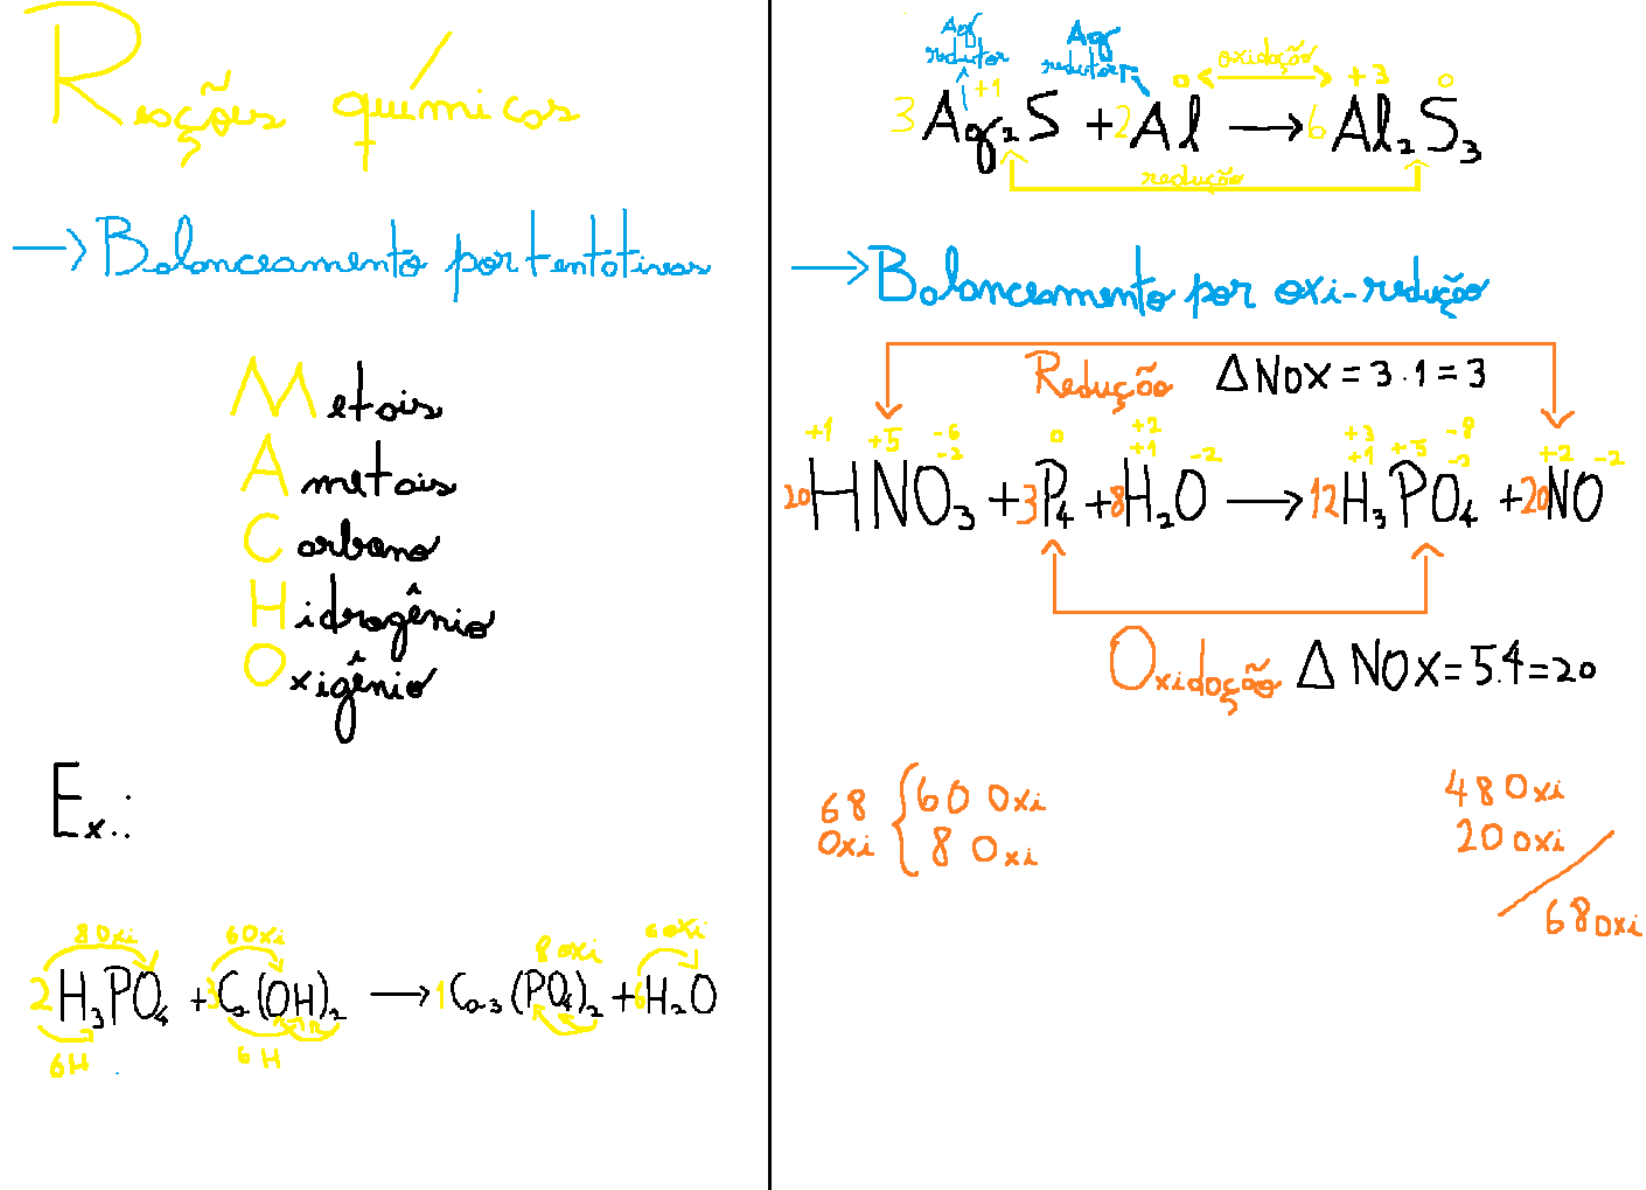 Reações químicas
→ Balanceamento por tentativas
Metais
Ametais
Carbono
Hidrogênio
Oxigênio
Ex.:
8 Oxi 6 Oxi 8 oxi 6 oxi
2 H₃PO₄ + 3 Ca(OH)₂ → 1 Ca₃(PO₄)₂ + 6 H₂O
6H 6H
Ag redutor Ag redutor
+1 0 oxidação +3 0
3 Ag₂S + 2 Al → 6 Al₂S₃
redução
→ Balanceamento por oxi-redução
Redução Δ NOX = 3 . 1 = 3
+1 +5 -6 0 +2 +3 -8
-2 +1 -2 +1 +5 -2 +2 -2
20 HNO₃ + 3 P₄ + 8 H₂O → 12 H₃PO₄ + 20 NO
Oxidação Δ NOX = 5.4 = 20
68 Oxi { 60 Oxi
8 Oxi
48 Oxi
20 oxi
68 oxi